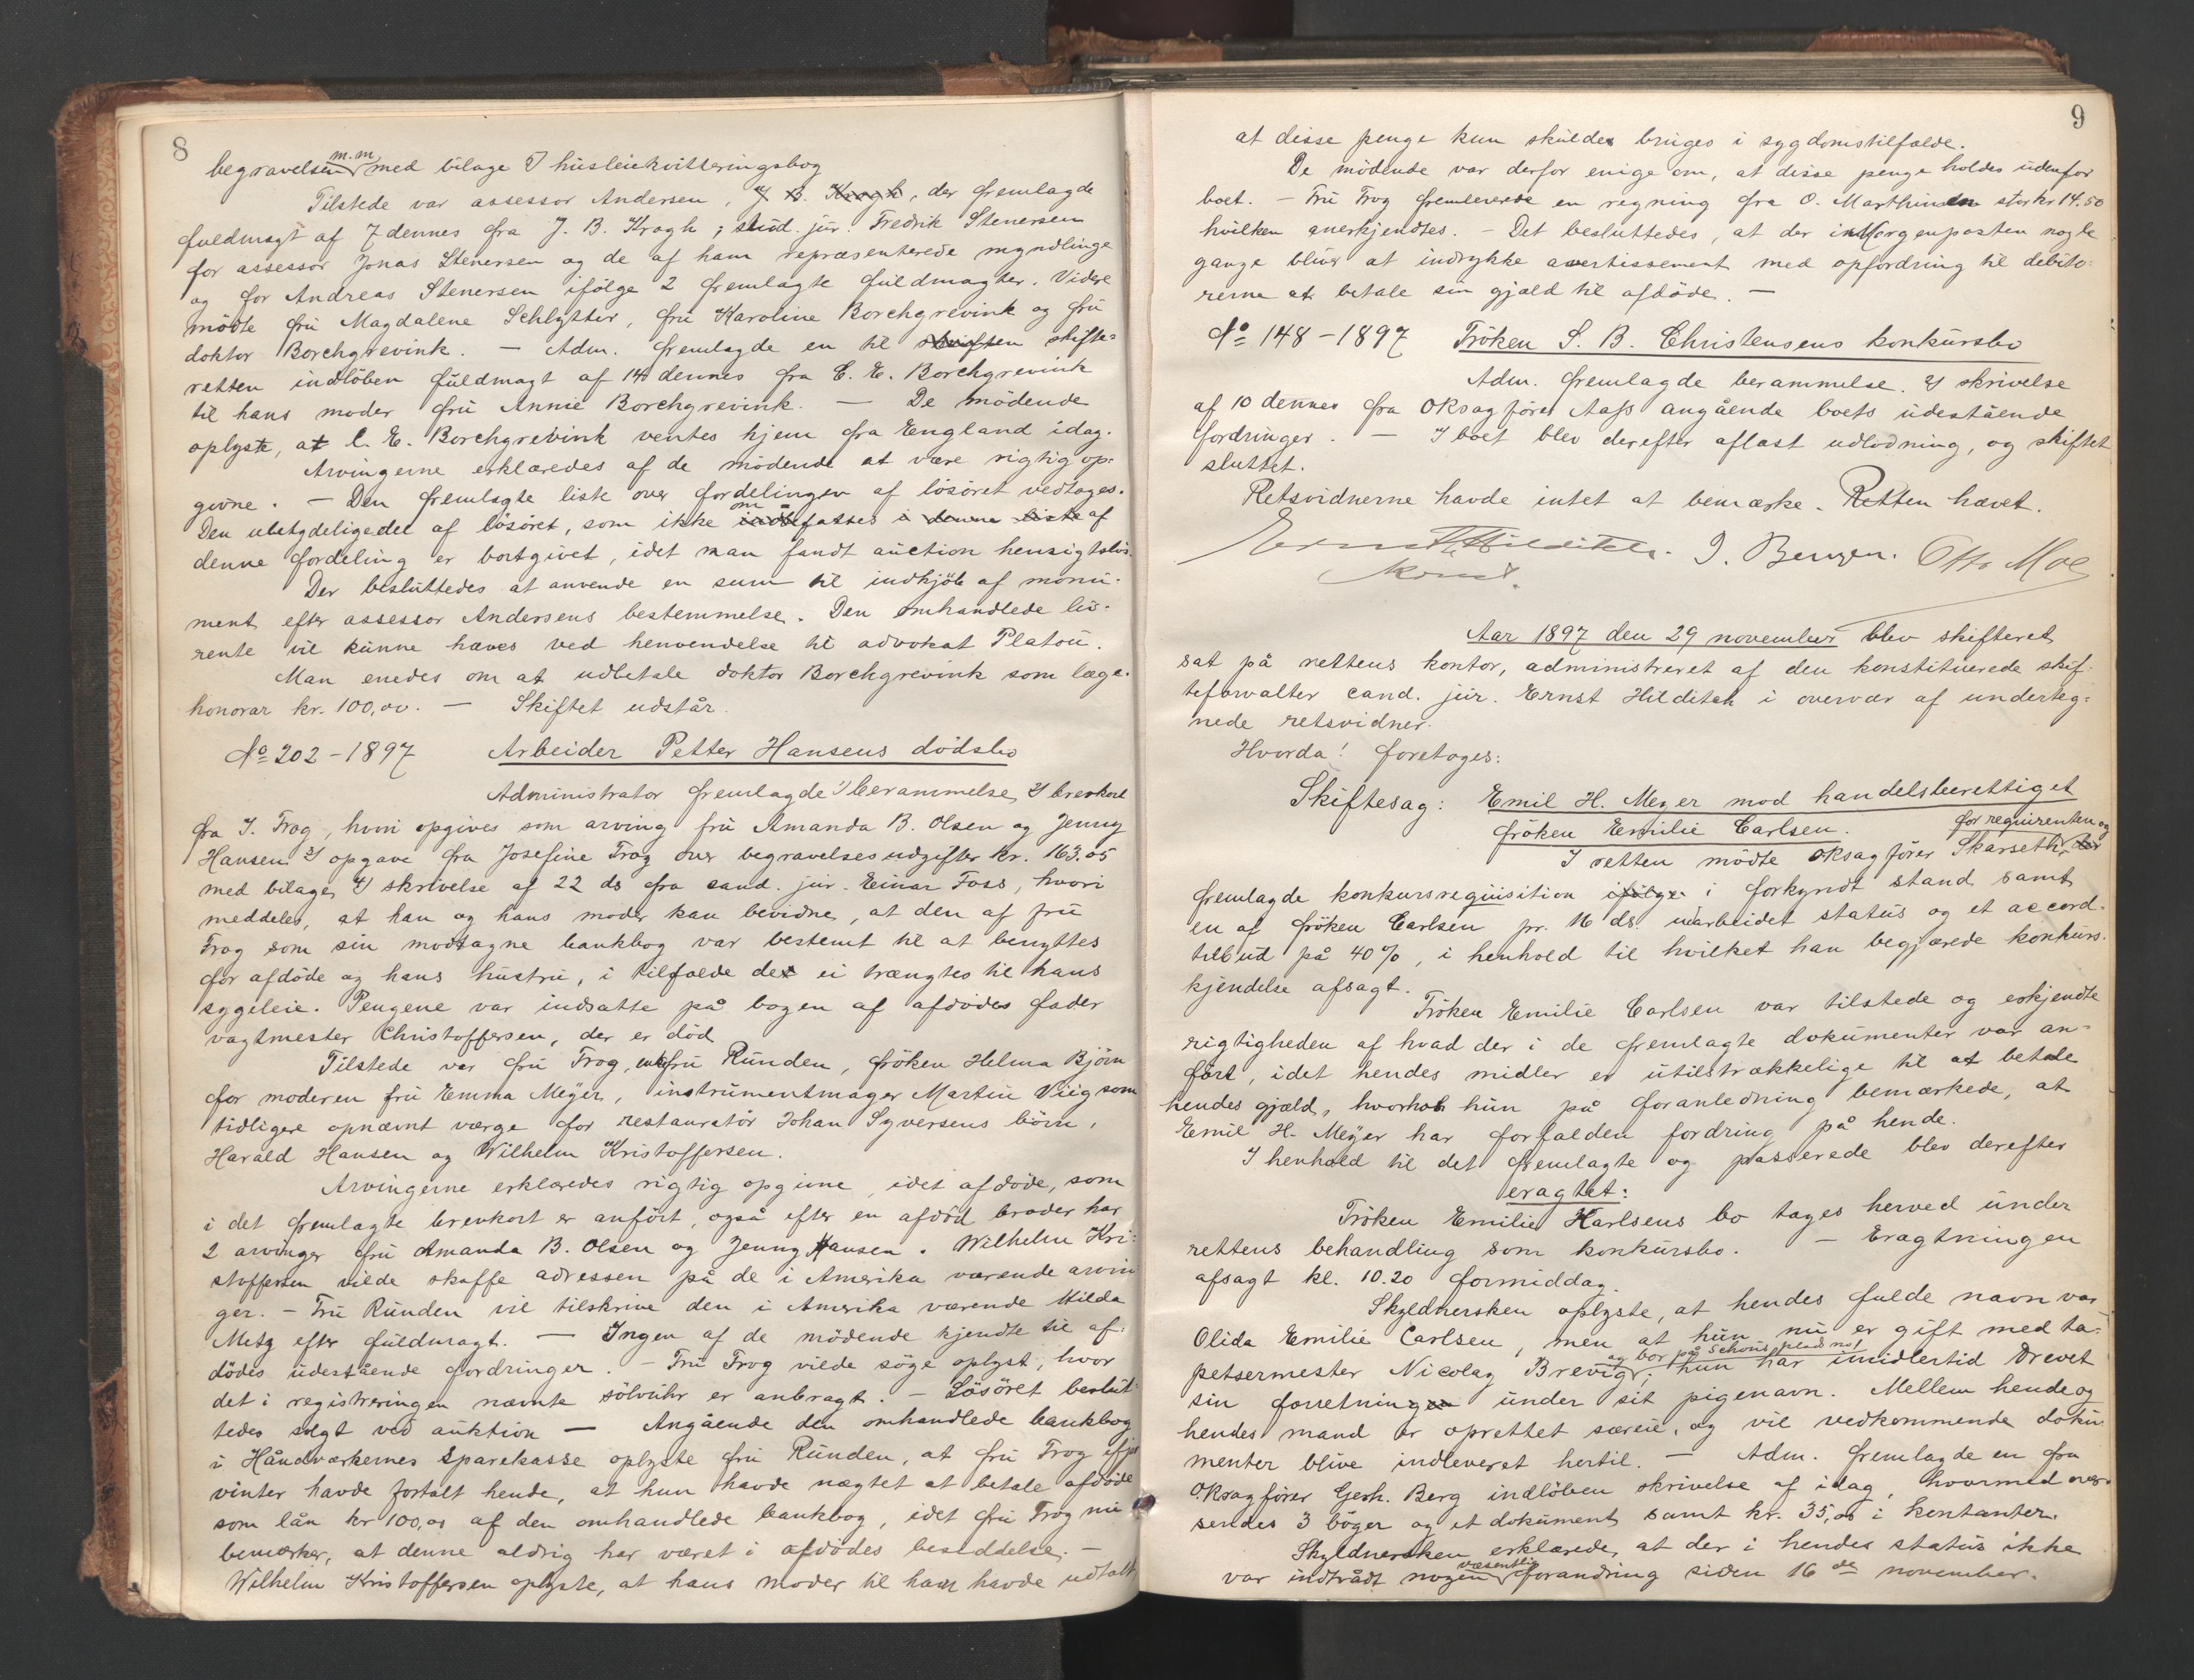 8
begravelsen m.m. med bilage I husleiekvitteringsbog
Tilstede var assessor Andersen, J. B. Kragh, der fremlagde
fuldmagt af 7 dennes fra J. B. Kragh; stud. jur. Fredrik Stenersen
for assessor Jonas Stenersen og de af ham repræsenterede myndlinge
og for Andreas Stenersen ifölge 2 fremlagte fuldmagter. Videre
mödte fru Magdalene Schlytter, fru Karoline Borchgrevink og fru
doktor Borchgrevink. — Adm. fremlagde en til skriften skifte=
retten indlöben fuldmagt af 14 dennes fra C. E. Borchgrevink
til hans moder fru Annie Borchgrevink. — De mödende
oplyste, at C. E. Borchgrevink ventes hjem fra England idag.
Arvingerne erklæredes af de mödende at være rigtig op-
givne. — Den fremlagte liste over fordelingen af lösöret vedtoges.
Den ubetydelige del af lösöret, som ikke om indbefattes i denne liste af
denne fordeling er bortgivet, idet man fandt auction hensigtslös.
Der besluttedes at anvende en sum til indkjöb af monu-
ment efter assessor Andersens bestemmelse. Den omhandlede liv-
rente vil kunne hæves ved henvendelse til advokat Platou.
Man enedes om at udbetale doktor Borchgrevink som læge-
honorar kr. 100,00. — Skiftet udstår.
No 202 - 1897 Arbeider Petter Hansens dödsbo
Administrator fremlagde 1) berammelse, 2) brevkort
fra J. Trog, hvori opgives som arving fru Amanda B. Olsen og Jenny
Hansen 3) opgave fra Josefine Trog over begravelsesudgifter kr. 163.05
med bilager, 4) skrivelse af 22 ds fra cand. jur. Einar Foss, hvori
meddeles, at han og hans moder kan bevidne, at den af fru
Trog som sin modtagne bankbog var bestemt til at benyttes
for afdöde og hans hustru, i tilfælde det ei trængtes til hans
sygeleie. Pengene var indsatte på bogen af afdödes fader
vagtmester Christoffersen, der er död
Tilstede var fru Trog, fru Runden, fröken Helma Björn
for moderen fru Emma Meyer, instrumentmager Martin Viig som
tidligere opnævnt værge for restauratör Johan Syversens börn,
Harald Hansen og Wilhelm Kristoffersen.
Arvingerne erklæredes rigtig opgivne, idet afdöde, som
i det fremlagte brevkort er anfört, også efter en afdöd broder har
2 arvinger fru Amanda B. Olsen og Jenny Hansen. Wilhelm Kri-
stoffersen vilde skaffe adressen på de i Amerika værende arvin
ger. — Fru Runden vil tilskrive den i Amerika værende Hilda
Metz efter fuldmagt. — Ingen af de mödende kjendte til af-
dödes udestående fordringer. — Fru Trog vilde söge oplyst, hvor
det i registreringen nævnte sölvuhr er anbragt. — Lösöret beslut-
tedes solgt ved auktion — Angående den omhandlede bankbog
i Håndværkernes Sparekasse oplyste fru Runden, at fru Trog ifjor
vinter havde fortalt hende, at hun havde nægtet at betale afdöde
som lån kr 100,00 af den omhandlede bankbog, idet fru Trog nu
bemærker, at denne aldrig har været i afdödes besiddelse. —
Wilhelm Kristoffersen oplyste, at hans moder til ham havde udtalt
9
at disse penge kun skulde bruges i sygdomstilfælde.
De mödende var derfor enige om, at disse penge holdes udenfor
boet. — Fru Trog fremleverede en regning fra O. Marthinsen stor kr 14.50
hvilken anerkjendtes. — Det besluttedes, at der i Morgenposten nogle
gange bliver at indrykke avertissement med opfordring til debito-
rerne at betale sin gjæld til afdöde. —
No 148 - 1897 Fröken S. B. Christensens konkursbo
Adm. fremlagde berammelse. 2) skrivelse
af 10 dennes fra oksagförer Aass angående boets udestående
fordringer. — I boet blev derefter aflæst udlodning, og skiftet
sluttet.
Retsvidnerne havde intet at bemærke. Retten hævet.
Ernst Hilditch. J. Bengen. Otto Moe
konst.
Aar 1897 den 29 november blev skifteret
sat på rettens kontor, administreret af den konstituerede skif-
teforvalter cand. jur. Ernst Hilditch i overvær af underteg=
nede retsvidner.
Hvorda! foretoges:
Skiftesag: Emil H. Meyer mod handelsberettiget
fröken Emilie Carlsen.
for requirenten og
I retten mödte oksagförer Skarseth, der
fremlagde konkursrequisition ifölge i forkyndt stand samt
en af fröken Carlsen pr. 16 ds. udarbeidet status og et accord-
tilbud på 40%, i henhold til hvilket han begjærede konkurs-
kjendelse afsagt.
Fröken Emilie Carlsen var tilstede og erkjendte
rigtigheden af hvad der i de fremlagte dokumenter var an-
fört, idet hendes midler er utilstrækkelige til at betale
hendes gjæld, hvorhos hun på foranledning bemærkede, at
Emil H. Meyer har forfalden fordring på hende.
I henhold til det fremlagte og passerede blev derefter
eragtet:
Fröken Emilie Karlsens bo tages herved under
rettens behandling som konkursbo. — Eragtningen
afsagt kl. 10.20 formiddag.
Skyldnersken oplyste, at hendes fulde navn var
Olida Emilie Carlsen, men at hun nu er gift med ta-
petsermester Nicolay Brevig, og bor på Schous plads no 1 hun har imidlertid drevet
sin forretningen under sit pigenavn. Mellem hende og
hendes mand er oprettet særeie, og vil vedkommende doku-
menter blive indleveret hertil. — Adm. fremlagde en fra
O.Rsagförer Gerh. Berg indlöben skrivelse af idag, hvormed over-
sendes 3 böger og et dokument samt kr. 35,00 i kontanter.
Skyldnersken erklærede, at der i hendes status ikke
var indtrådt nogen væsentlig forandring siden 16de november.